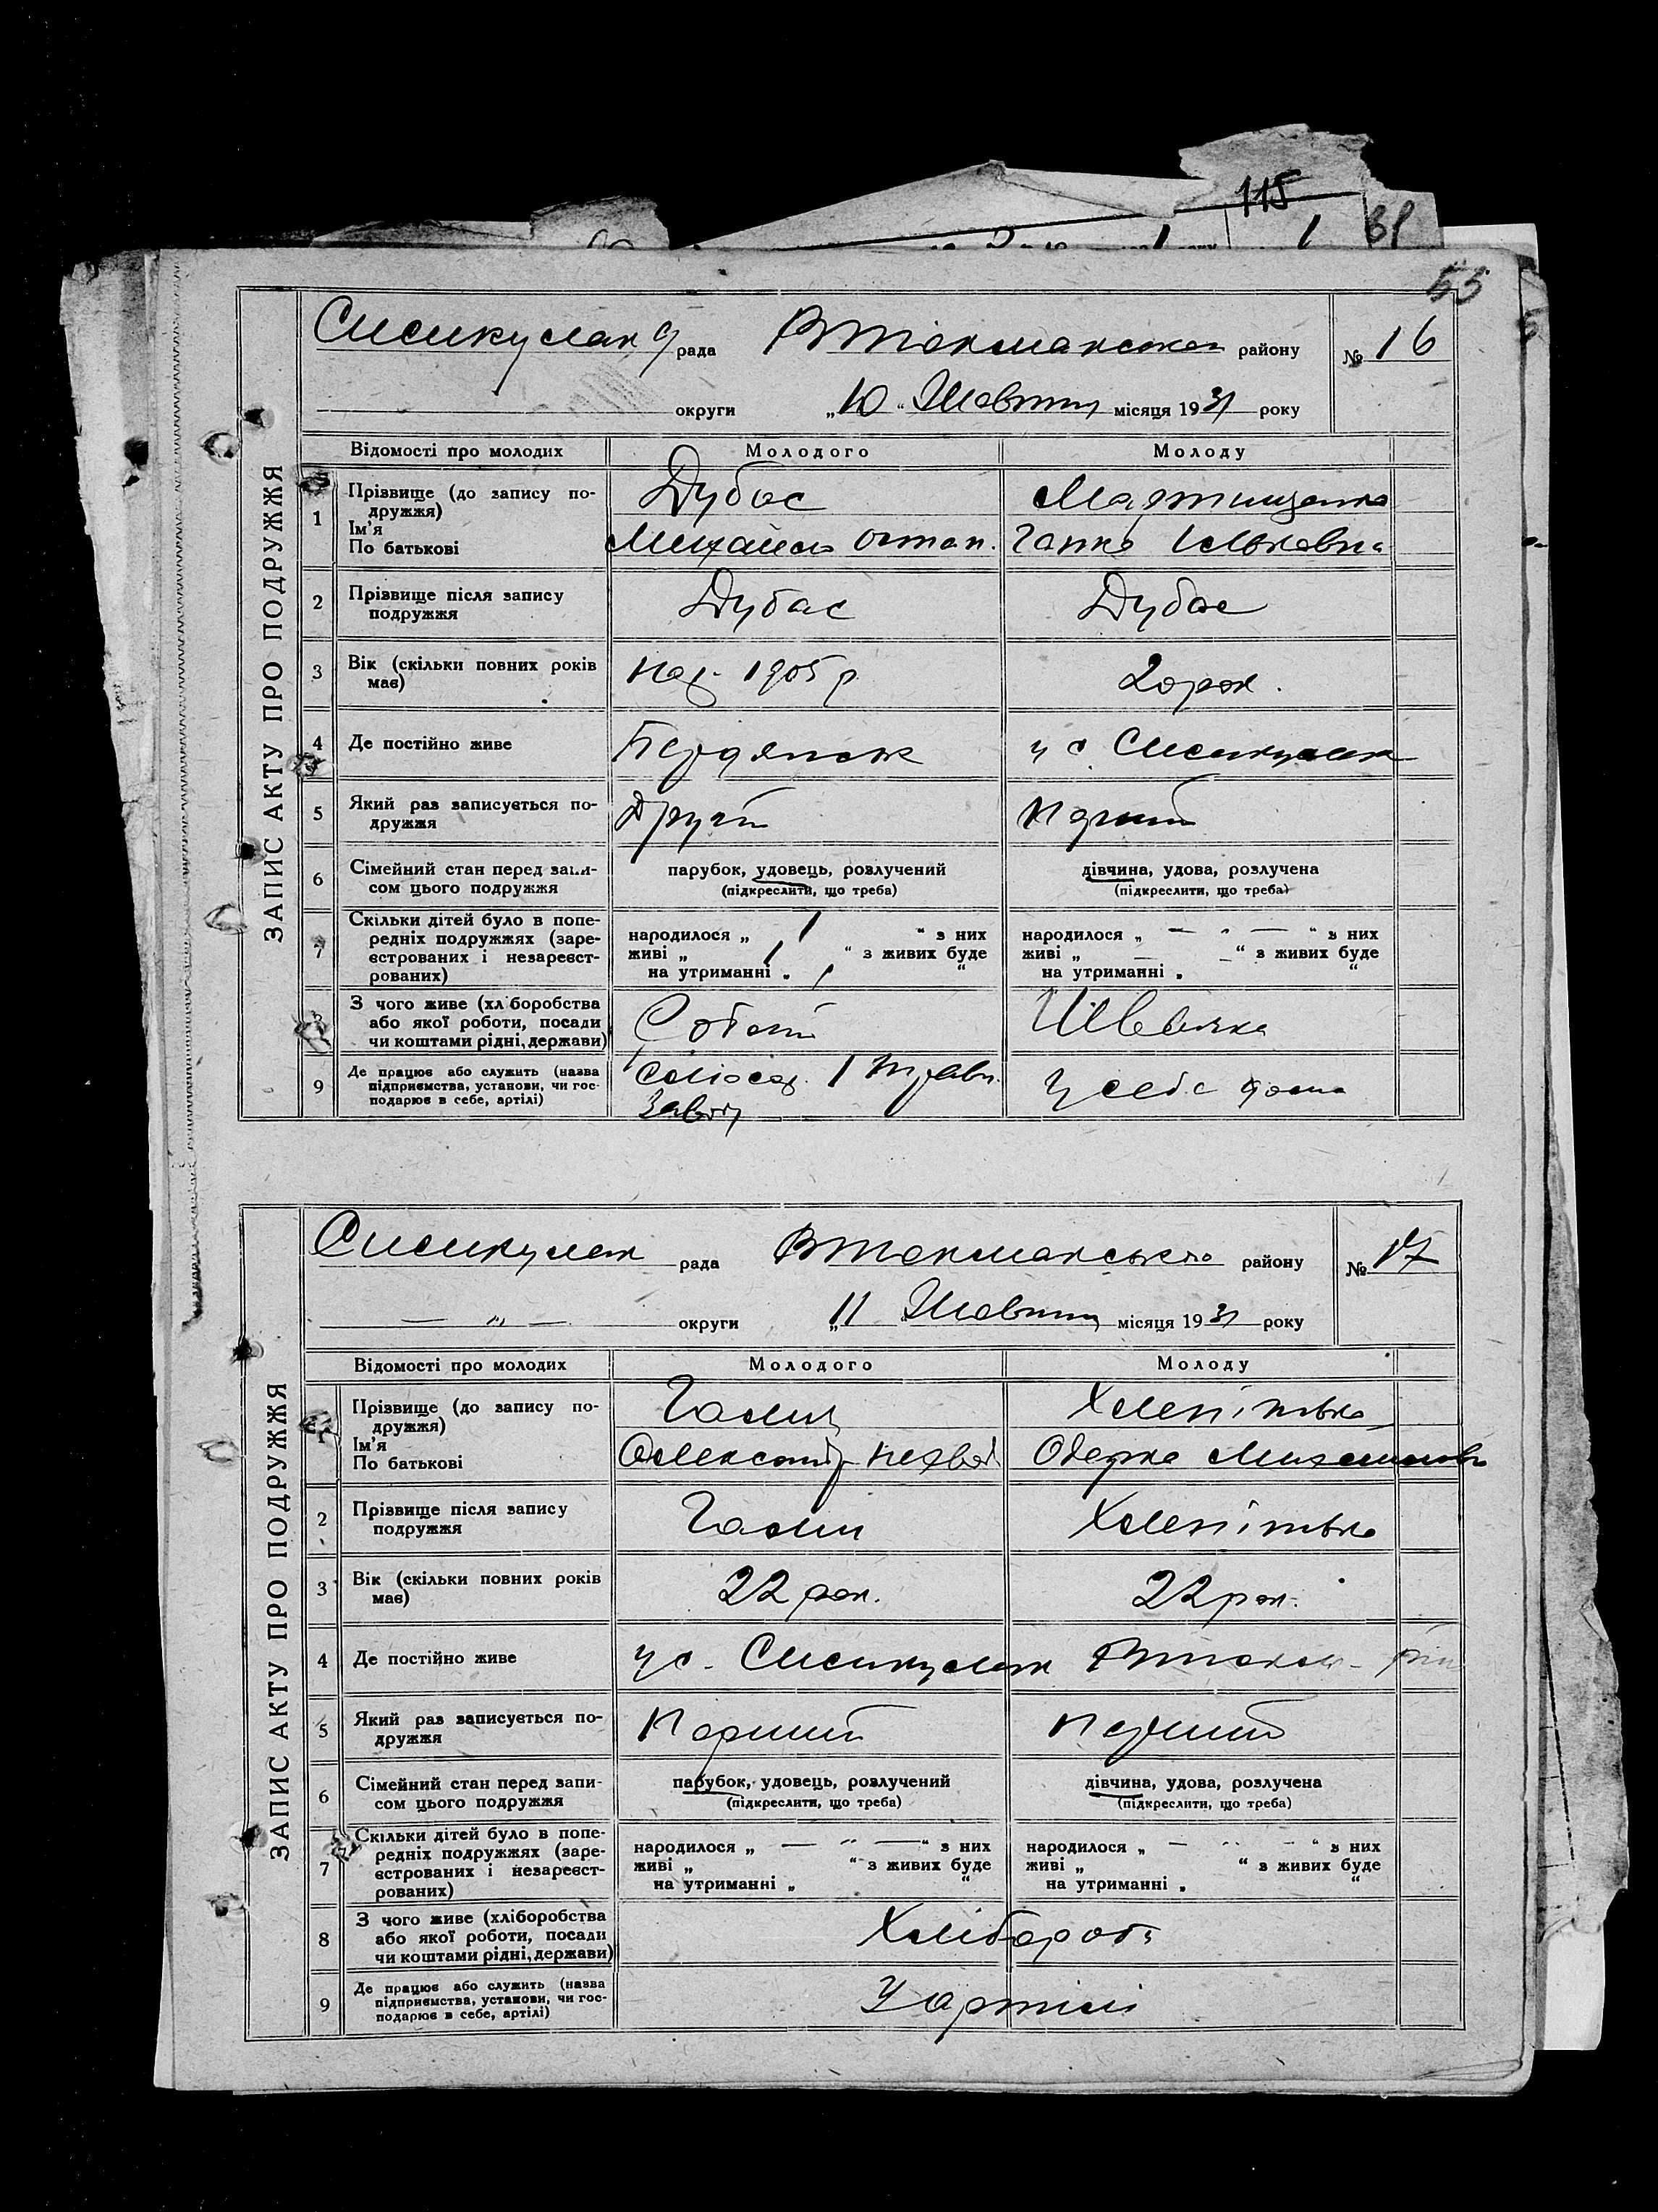 115
61
55
ЗАПИС АКТУ ПРО ПОДРУЖЖЯ
рада
району
№ 16
округи „10“ Жовтня місяця 1931 року
Відомості про молодих
Молодого
Молоду
1
Прізвище (до запису подружжя)
Дубас
Ім'я
По батькові
Михайло Остап.
Ганна
2
Прізвище після запису
подружжя
Дубас
Дубас
3
Вік (скільки повних років
має)
нар. 1905 р
20 рок.
4
Де постійно живе
Бердянськ
у с.
5
Який раз записується по-
дружжя
Другий
Перший
6
Сімейний стан перед запи-
сом цього подружжя
парубок, удовець, розлучений
(підкреслити, що треба)
дівчина, удова, розлучена
(підкреслити, що треба)
7
Скільки дітей було в попе-
редніх подружжях (заре-
єстрованих і незареєст-
рованих)
народилося „ 1 “ з них
живі „ 1 “ з живих буде
на утриманні „ 1 “
народилося „ — " — “ з них
живі „ — — “ з живих буде
на утриманні „ “
8
З чого живе (хліборобства
або якої роботи, посади
чи коштами рідні, держави)
Швачка
9
Де працює або служить (назва
підприємства, установи, чи гос-
подарює в себе, артілі)
1 Травн.
Завод
У себе дома
ЗАПИС АКТУ ПРО ПОДРУЖЖЯ
рада
району
№ 17
— „ — округи „11 Жовтня місяця 1931 року
Відомості про молодих
Молодого
Молоду
1
Прізвище (до запису по-
дружжя)
Ім'я
По батькові
Олександр
Одарка Михайловн
2
Прізвище після запису
подружжя
3
Вік (скільки повних років
має)
22 рок.
22 рок.
4
Де постійно живе
у с.
5
Який раз записується по-
дружжя
Перший
Перший
6
Сімейний стан перед запи-
сом цього подружжя
парубок, удовець, розлучений
(підкреслити, що треба)
дівчина, удова, розлучена
(підкреслити, що треба)
7
Скільки дітей було в попе-
редніх подружжях (заре-
єстрованих і незареєст-
рованих)
народилося „ — " — “ з них
живі „ “ з живих буде
на утриманні „ “
народилося „ — " — “ з них
живі „ “ з живих буде
на утриманні „ “
8
З чого живе (хліборобства
або якої роботи, посади
чи коштами рідні, держави)
Хлібороби
9
Де працює або служить (назва
підприємства, установи, чи гос-
подарює в себе, артілі)
У артілі